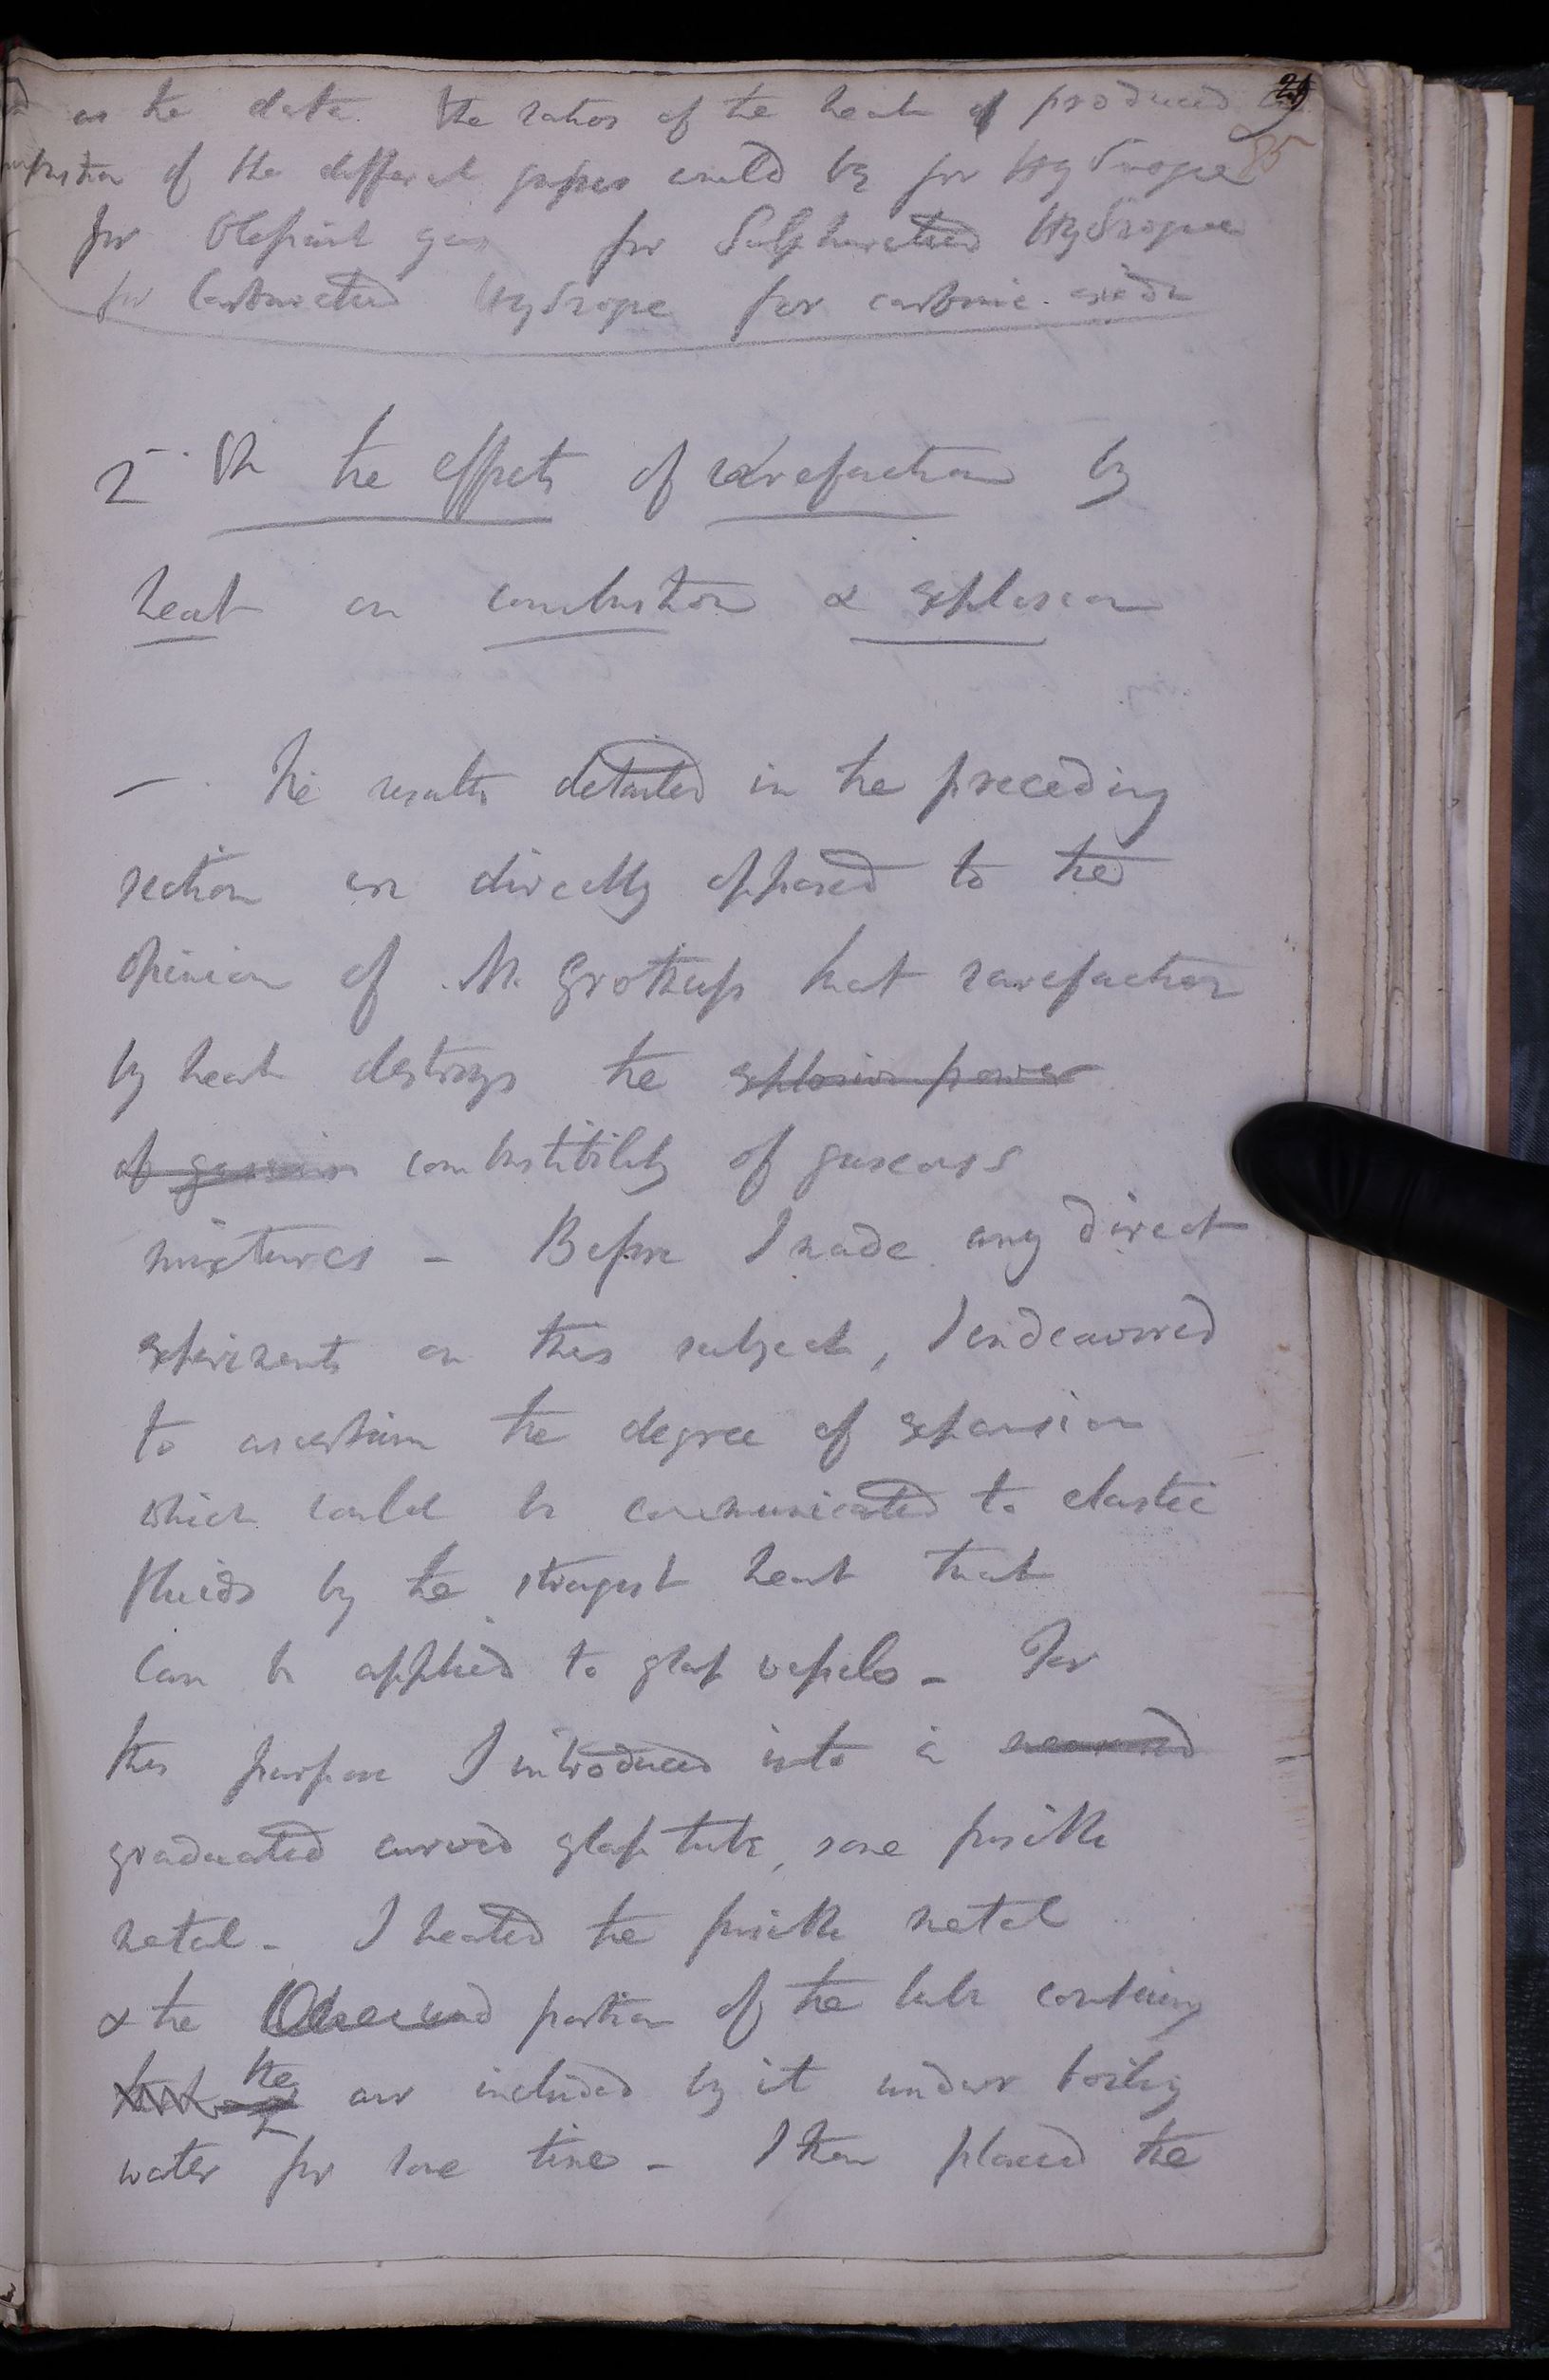 29
85
as the data. The ratios of the heat of produced
of the different gasses would be for Hydrogene
for Olefiant gas for Sulphuretted Hydrogene
for Carburetted Hydrogene for carbonic oxide
2. On the effects of rarefaction by
heat on combustion & explosion
— The results detailed in the preceding
section are directly opposed to the
opinion of M. Grotthuss that rarefaction
by heat destroys the explosive power
of gaseous combustibility of gaseous
mixtures - Before I made any direct
experiments on this subject, I endeavored
to ascertain the degree of expansion
which could be communicated to elastic
fluids by the strongest heat that
can be applied to glass vessels - For
this purpose I introduced into a
graduated curved glass tube, some fusible
metal - I heated the fusible metal
& the portion of the tube containing
the air included by it under boiling
water for some time - I then placed the